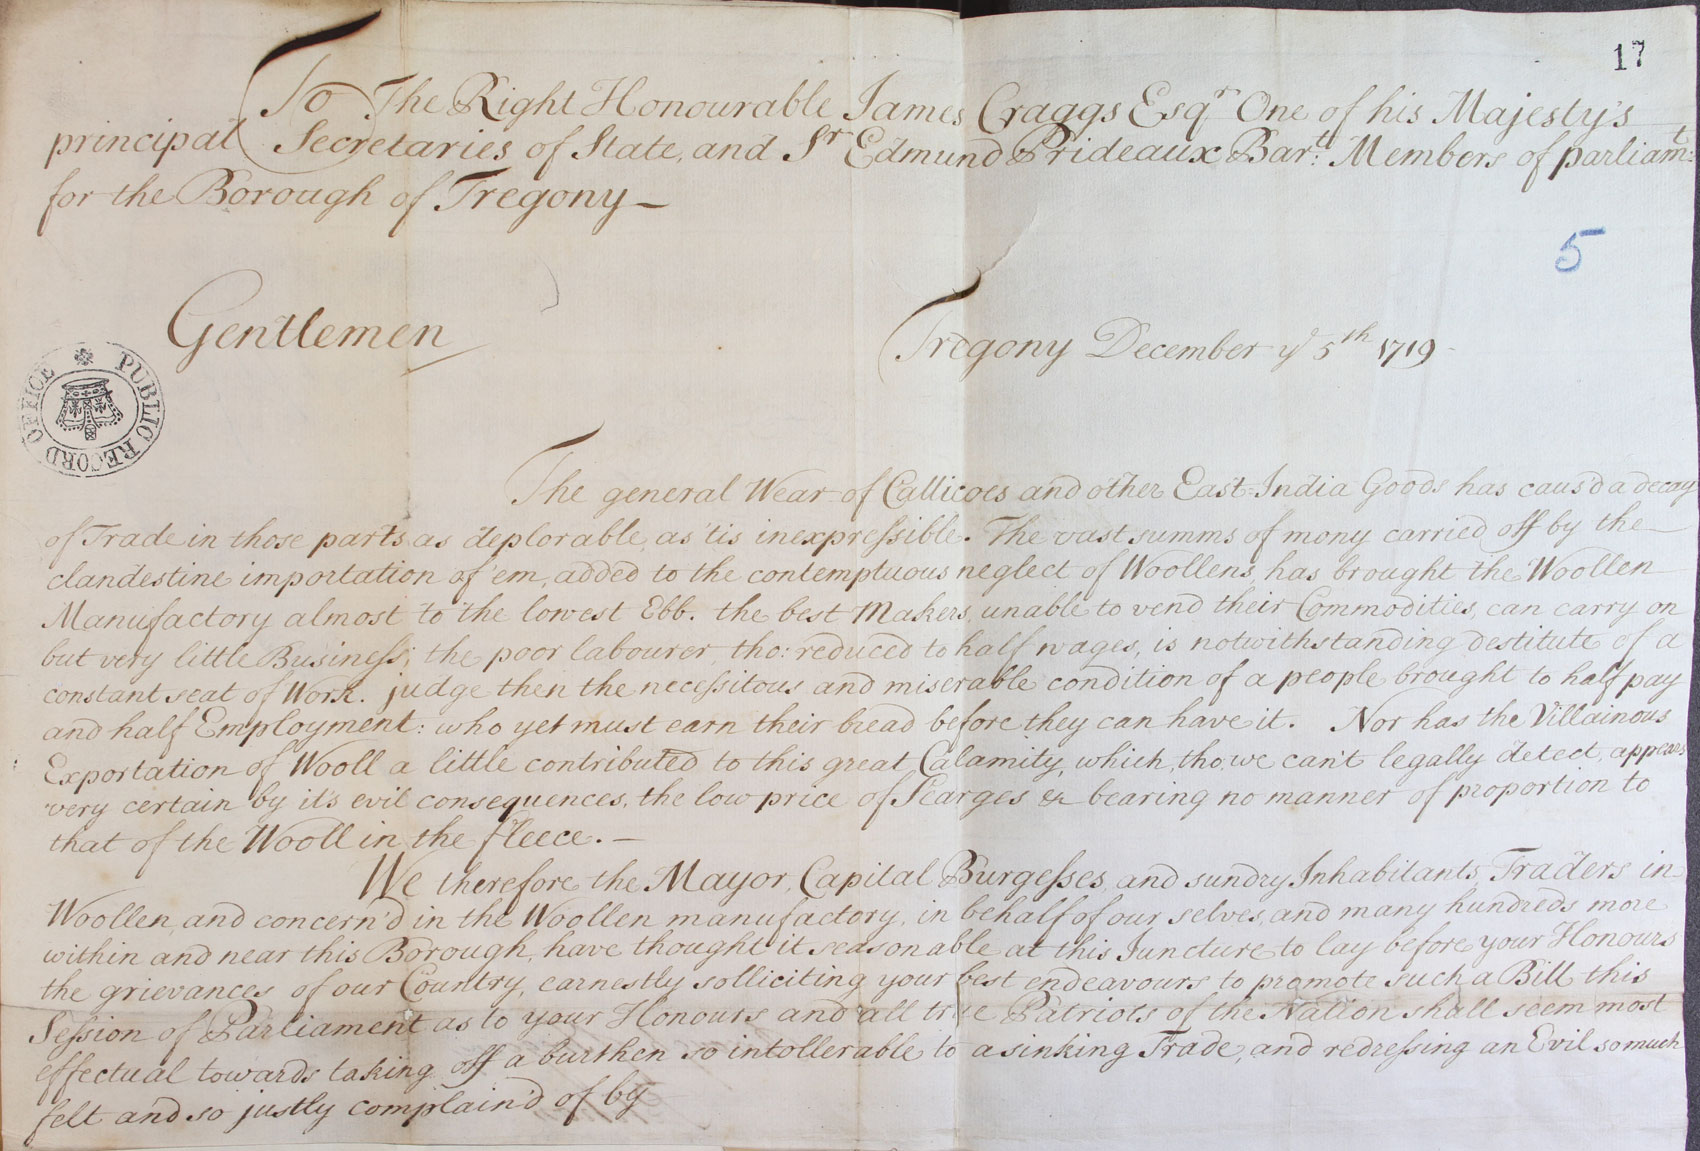 17
To The Right Honourable James Craggs Esqr One of his Majesty's
principal Secretaries of State, and Sr Edmund Prideaux Bart: Members of parliamt:
for the Borough of Tregony —
5
Gentlemen
Tregony December ye 5th 1719
PUBLIC RECORD OFFICE
The general Wear of Callicoes and other East-India Goods has caus'd a decay
of Trade in those parts as deplorable, as 'tis inexpressible. The vast summs of mony carried off by the
clandestine importation of 'em, added to the contemptuous neglect of Woollens, has brought the Woollen
Manufactory almost to the lowest Ebb. the best Makers, unable to vend their Commodities, can carry on
but very little Business; the poor labourer, tho: reduced to half wages, is notwithstanding destitute of a
constant seat of Work. judge then the necessitous and miserable condition of a people brought to half pay
and half Employment: who yet must earn their bread before they can have it. Nor has the Villainous
Exportation of Wooll a little contributed to this great Calamity, which, tho: we can't legally detect, appears
very certain by it's evil consequences, the low price of Searges &c bearing no manner of proportion to
that of the Wooll in the fleece. —
We therefore the Mayor, Capital Burgesses, and sundry Inhabitants, Traders in
Woollen, and concern'd in the Woollen manufactory, in behalf of our selves, and many hundreds more
within and near this Borough, have thought it seasonable at this Juncture to lay before your Honours
the grievances of our Country, earnestly solliciting your best endeavours to promote such a Bill this
Session of Parliament as to your Honours and all true Patriots of the Nation shall seem most
effectual towards taking off a burthen so intollerable to a sinking Trade, and redressing an Evil so much
felt and so justly complain'd of by